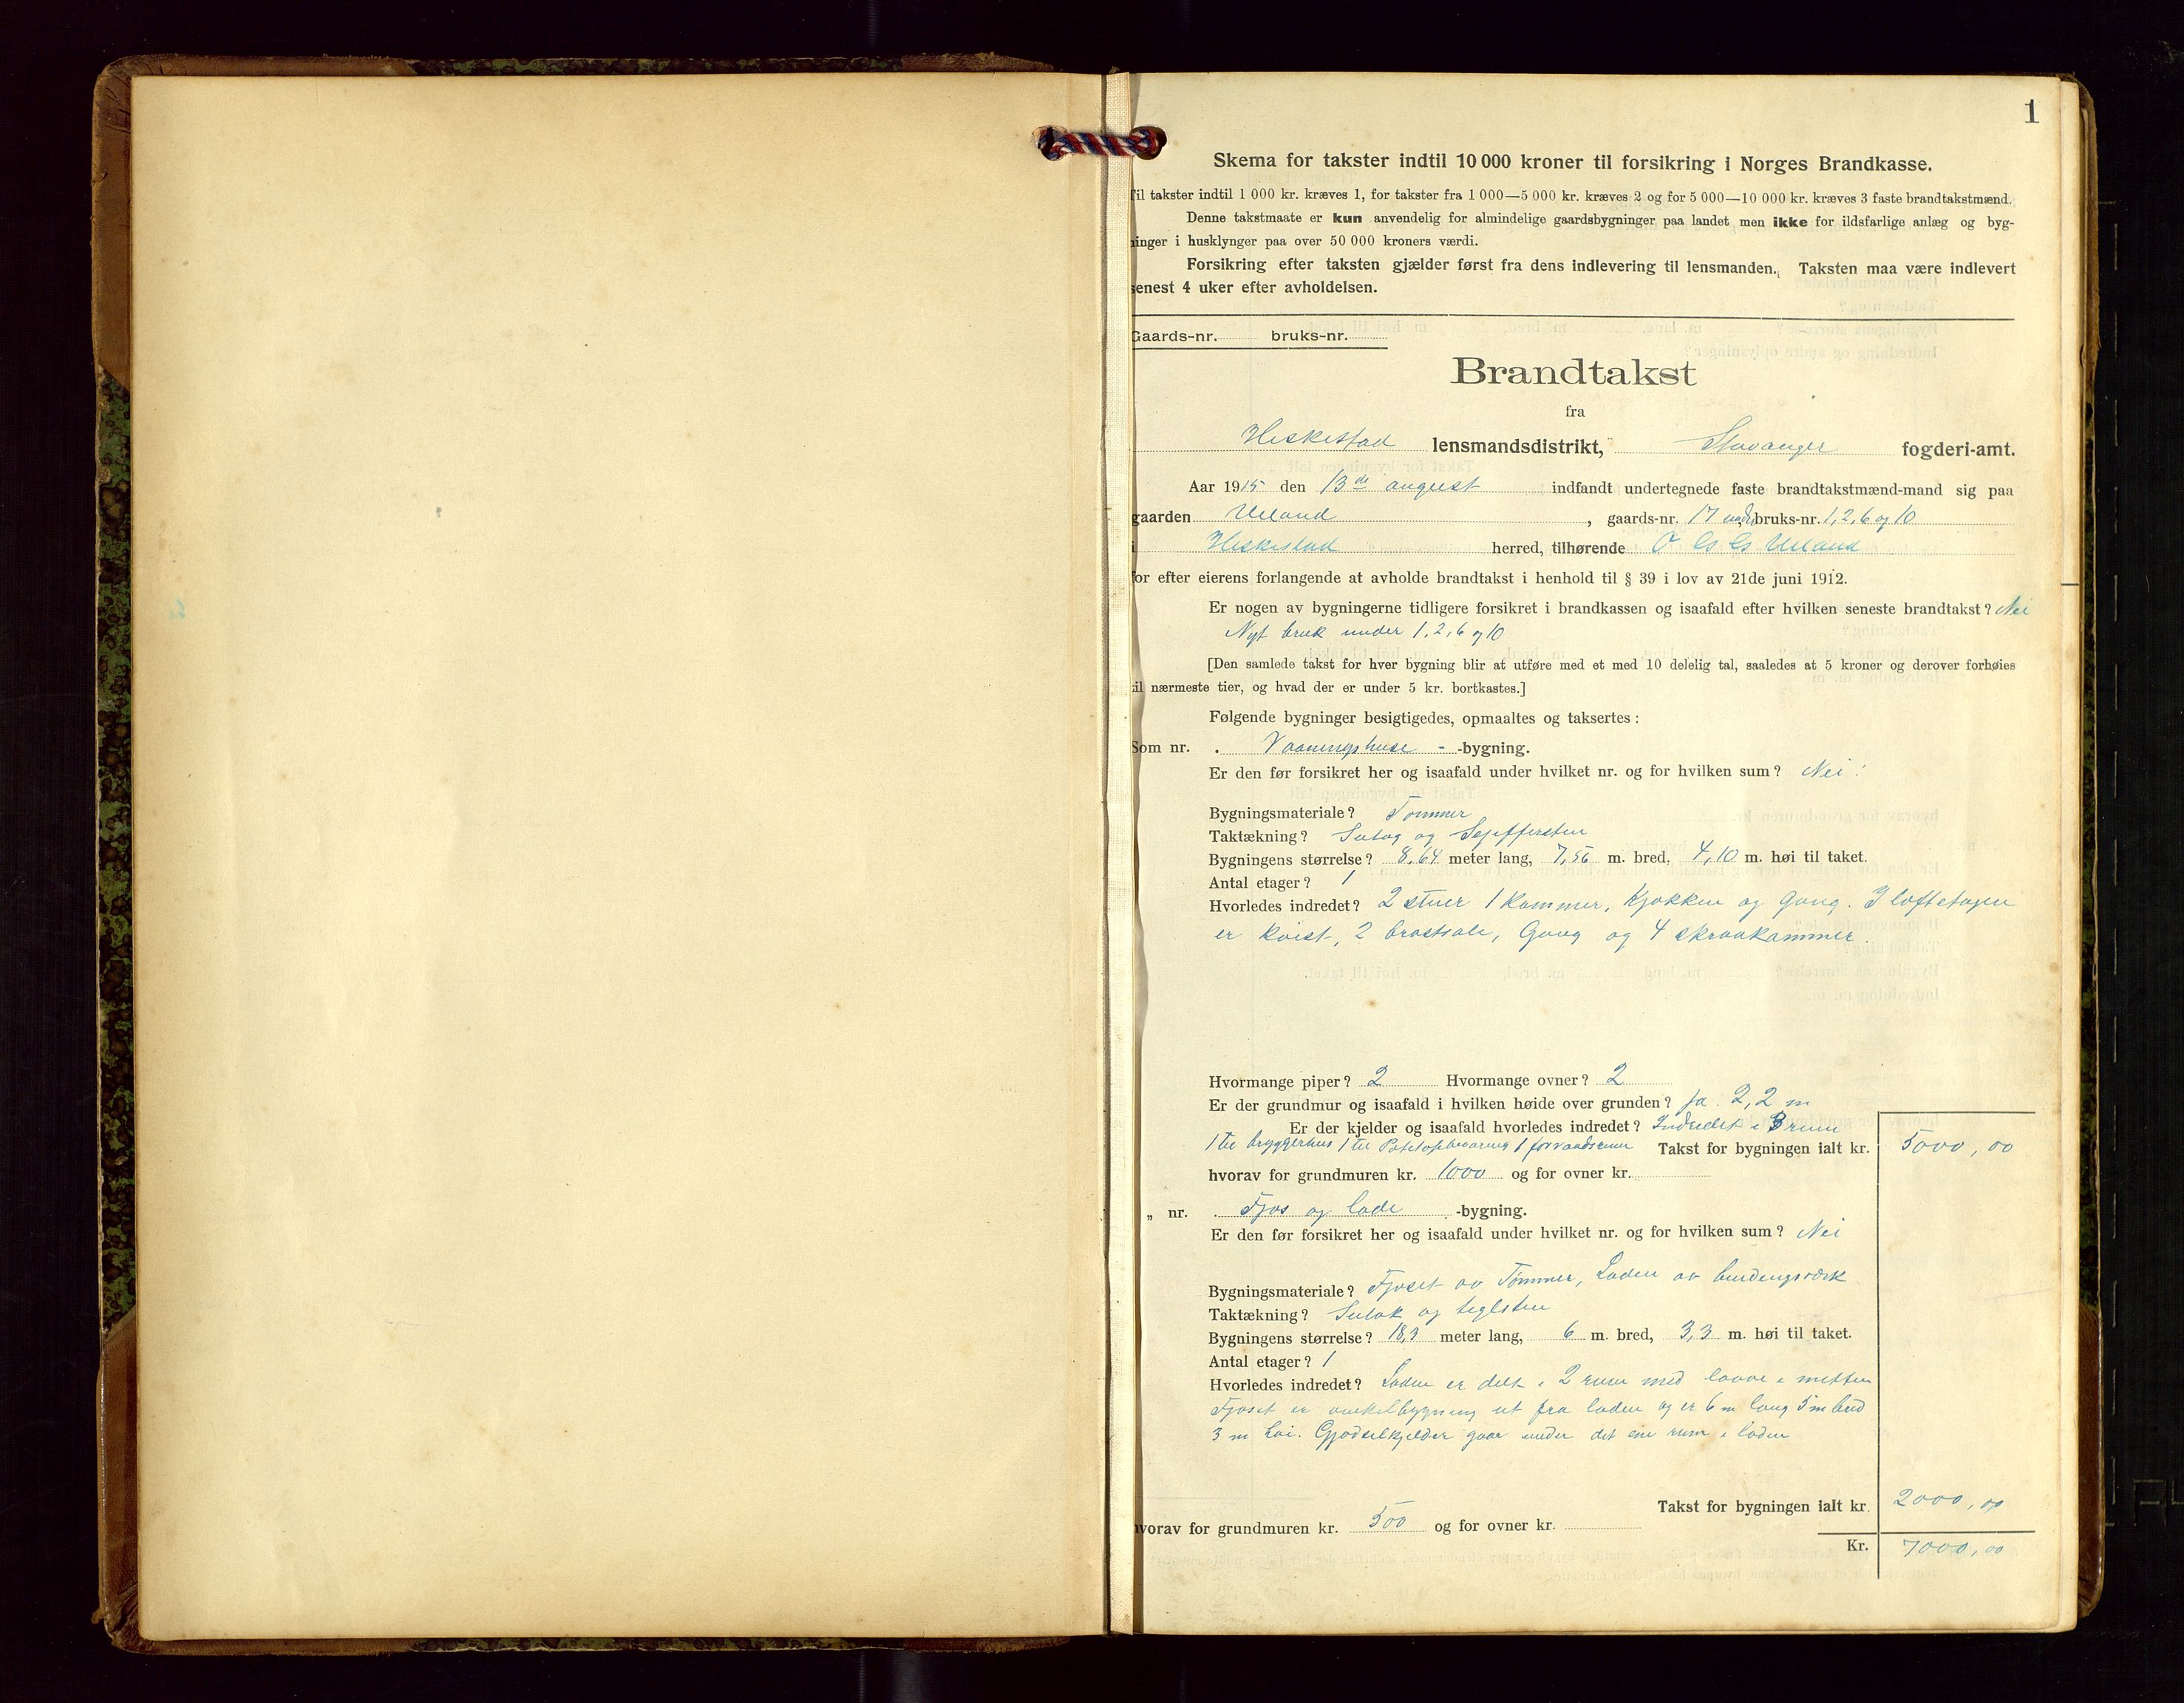 1
Skema for takster indtil 10 000 kroner til forsikring i Norges Brandkasse.
Til takster indtil 1 000 kr. kræves 1, for takster fra 1 000—5 000 kr. kræves 2 og for 5 000—10 000 kr. kræves 3 faste brandtakstmænd.
Denne takstmaate er kun anvendelig for almindelige gaardsbygninger paa landet men ikke for ildsfarlige anlæg og byg-
ninger i husklynger paa over 50 000 kroners værdi.
Forsikring efter taksten gjælder først fra dens indlevering til lensmanden. Taksten maa være indlevert
senest 4 uker efter avholdelsen.
Gaards-nr. bruks-nr.
Brandtakst
fra
Heskestad lensmandsdistrikt, Stavanger fogderi-amt.
Aar 1915 den 13de august indfandt undertegnede faste brandtakstmænd-mand sig paa
gaarden Ueland, gaards-nr. 17 under bruks-nr. 1, 2, 6 og 10
i Heskestad herred, tilhørende O Ueland
for efter eierens forlangende at avholde brandtakst i henhold til § 39 i lov av 21de juni 1912.
Er nogen av bygningerne tidligere forsikret i brandkassen og isaafald efter hvilken seneste brandtakst? Nei
Nyt bruk under 1, 2, 6 og 10
[Den samlede takst for hver bygning blir at utføre med et med 10 delelig tal, saaledes at 5 kroner og derover forhøies
til nærmeste tier, og hvad der er under 5 kr. bortkastes.]
Følgende bygninger besigtigedes, opmaaltes og taksertes:
Som nr. . Vaaningshuse - -bygning.
Er den før forsikret her og isaafald under hvilket nr. og for hvilken sum? Nei.
Bygningsmateriale? Tømmer
Taktækning? Sutag og
Bygningens størrelse? 8,64 meter lang, 7,56 m. bred, 4,10 m. høi til taket.
Antal etager? 1
Hvorledes indredet? 2 stuer 1 Kammer, Kjøkken og Gang. I loftetagen
er kvist, 2 brostsale, Gang og 4 skraakammer.
Hvormange piper? 2 Hvormange ovner? 2
Er der grundmur og isaafald i hvilken høide over grunden? ja. 2,2 m
Er der kjelder og isaafald hvorledes indredet? Indredet i 3 rum
1 til bryggerhus 1 til Potetopbevaring 1 forraadsrum Takst for bygningen ialt kr. 5000,00
hvorav for grundmuren kr. 1000 og for ovner kr.
„ nr. . Fjøs og lade -bygning.
Er den før forsikret her og isaafald under hvilket nr. og for hvilken sum? Nei
Bygningsmateriale? Fjøset av Tømmer, Laden av bindingsværk
Taktækning? Sutak og teglsten
Bygningens størrelse? 18,3 meter lang, 6 m. bred, 3,3 m. høi til taket.
Antal etager? 1
Hvorledes indredet? Laden er delt i 2 rum med laave i mitten
Fjøset er vinkelbygning ut fra laden og er 6 m lang 5 m bred
3 m høi. Gjødselkjelder gaar under det ene rum i laden
Takst for bygningen ialt kr. 2000,00
hvorav for grundmuren kr. 500 og for ovner kr.
Kr. 7000,00